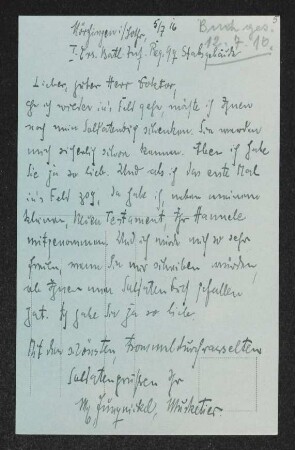 Mörchingen i/Lothr. 5/7 16
I. Ers. Batl. Inf. Reg. 97 Stabsgebäude
Buch ges.
12. 7. 16.
5
Lieber, guter Herr Doktor,
ehe ich wieder in's Feld gehe, möchte ich Ihnen
noch mein Soldatenbuch schenken. Sie werden
mich sicherlich schon kennen. Aber ich habe
Sie ja so lieb. Und als ich das erste Mal
in's Feld zog, da habe ich, neben meinem
kleinen, Neuen Testament, Ihr Hannele
mitgenommen. Und ich würde mich so sehr
freuen, wenn Sie mir schreiben würden,
ob Ihnen mein Soldatenbuch gefallen
hat. Ich habe Sie ja so lieb.
Mit den schönsten trommeldurchrasselten
Soldatengrüßen Ihr
M Jungnickel, Musketier.